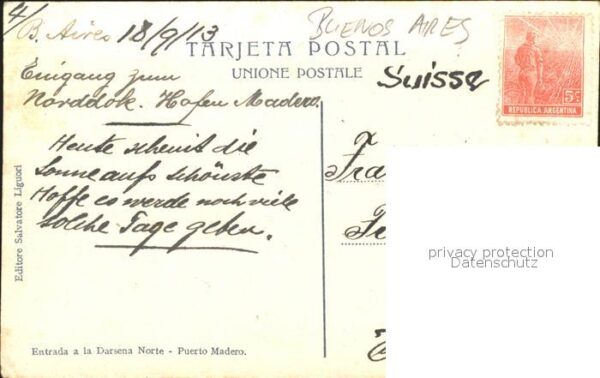 4/
B. Aires 18/9/13
BUENOS AIRES
TARJETA POSTAL
UNIONE POSTALE
Suisse
5c
REPUBLICA ARGENTINA
Eingang zum
Norddok. Hafen Madero.
Heute scheint die
Sonne aufs schönste
Hoffe es werde noch viele
solche Tage geben.
Editore Salvatore Liguori
privacy protection
Datenschutz
Entrada a la Darsena Norte - Puerto Madero.